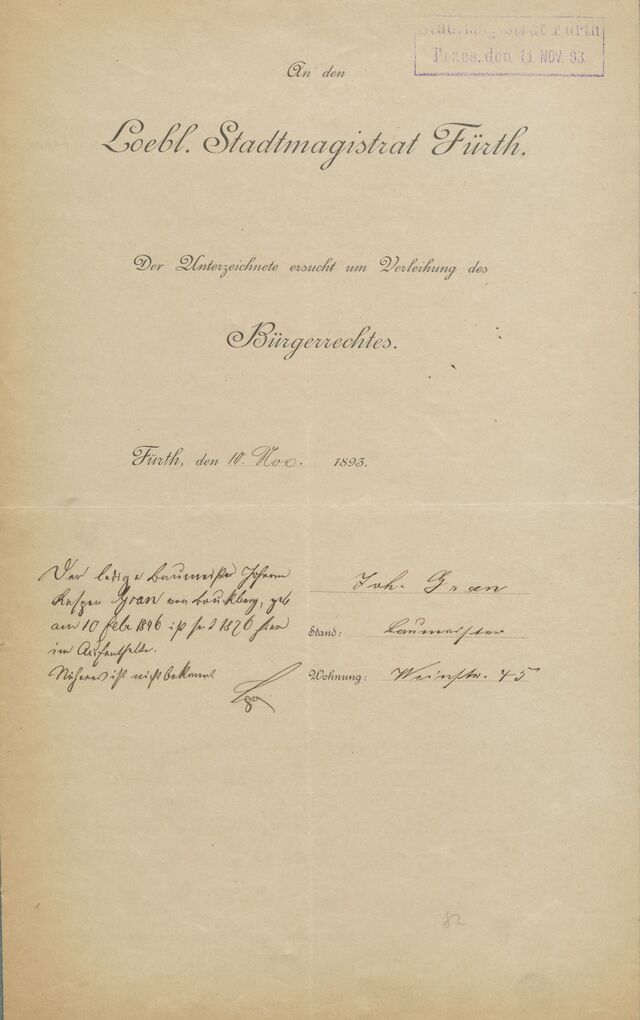 Stadtmagistrat Fürth
Praes. den 11 NOV. 93
An den
Loebl. Stadtmagistrat Fürth.
Der Unterzeichnete ersucht um Verleihung des
Bürgerrechtes.
Fürth, den 10. Nov. 1893.
Der ledige Baumeister Johann
Kaspar Gran von Bruckberg, geb
am 10 Febr 1846 ist seit 1876 hier
im Aufenthalte.
Näheres ist nicht bekannt
Joh. Gran
Stand: Baumeister
Wohnung: Weinstr. 45
82